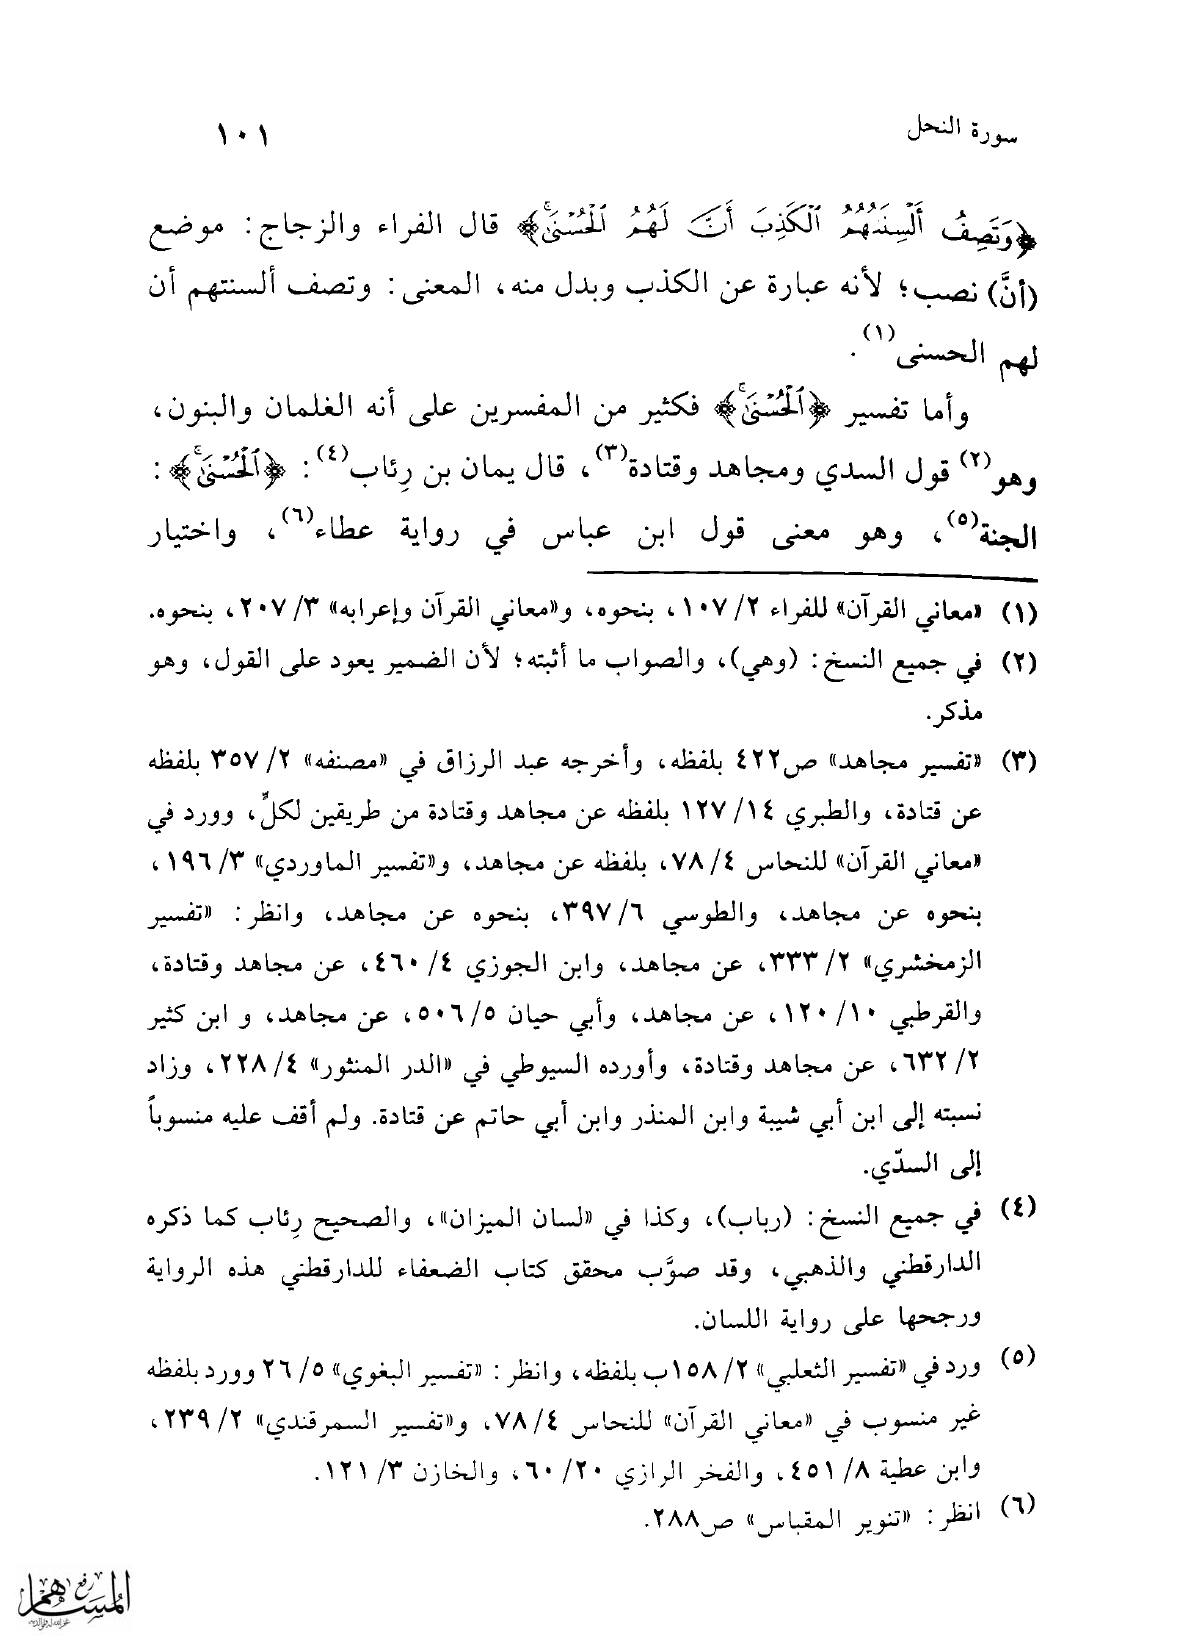 سورة النحل
١٠١
﴿وَتَصِفُ أَلْسِنَتُهُمُ ٱلْكَذِبَ أَنَّ لَهُمُ ٱلْحُسْنَىٰۚ﴾ قال الفراء والزجاج: موضع
(أنَّ) نصب؛ لأنه عبارة عن الكذب وبدل منه، المعنى: وتصف ألسنتهم أن
لهم الحسنى(١).
وأما تفسير ﴿ٱلْحُسْنَىٰۚ﴾ فكثير من المفسرين على أنه الغلمان والبنون،
وهو(٢) قول السدي ومجاهد وقتادة(٣)، قال يمان بن رِئاب(٤): ﴿ٱلْحُسْنَىٰۚ﴾:
الجنة(٥)، وهو معنى قول ابن عباس في رواية عطاء(٦)، واختيار
(١) «معاني القرآن» للفراء ٢/ ١٠٧، بنحوه، و«معاني القرآن وإعرابه» ٣/ ٢٠٧، بنحوه.
(٢) في جميع النسخ: (وهي)، والصواب ما أثبته؛ لأن الضمير يعود على القول، وهو
مذكر.
(٣) «تفسير مجاهد» ص٤٢٢ بلفظه، وأخرجه عبد الرزاق في «مصنفه» ٢/ ٣٥٧ بلفظه
عن قتادة، والطبري ١٤/ ١٢٧ بلفظه عن مجاهد وقتادة من طريقين لكلٍّ، وورد في
«معاني القرآن» للنحاس ٤/ ٧٨، بلفظه عن مجاهد، و«تفسير الماوردي» ٣/ ١٩٦،
بنحوه عن مجاهد، والطوسي ٦/ ٣٩٧، بنحوه عن مجاهد، وانظر: «تفسير
الزمخشري» ٢/ ٣٣٣، عن مجاهد، وابن الجوزي ٤/ ٤٦٠، عن مجاهد وقتادة،
والقرطبي ١٠/ ١٢٠، عن مجاهد، وأبي حيان ٥/ ٥٠٦، عن مجاهد، و ابن كثير
٢/ ٦٣٢، عن مجاهد وقتادة، وأورده السيوطي في «الدر المنثور» ٤/ ٢٢٨، وزاد
نسبته إلى ابن أبي شيبة وابن المنذر وابن أبي حاتم عن قتادة. ولم أقف عليه منسوباً
إلى السدّي.
(٤) في جميع النسخ: (رباب)، وكذا في «لسان الميزان»، والصحيح رِئاب كما ذكره
الدارقطني والذهبي، وقد صوَّب محقق كتاب الضعفاء للدارقطني هذه الرواية
ورجحها على رواية اللسان.
(٥) ورد في «تفسير الثعلبي» ٢/ ١٥٨ب بلفظه، وانظر: «تفسير البغوي» ٥/ ٢٦ وورد بلفظه
غير منسوب في «معاني القرآن» للنحاس ٤/ ٧٨، و«تفسير السمرقندي» ٢/ ٢٣٩،
وابن عطية ٨/ ٤٥١، والفخر الرازي ٢٠/ ٦٠، والخازن ٣/ ١٢١.
(٦) انظر: «تنوير المقباس» ص٢٨٨.